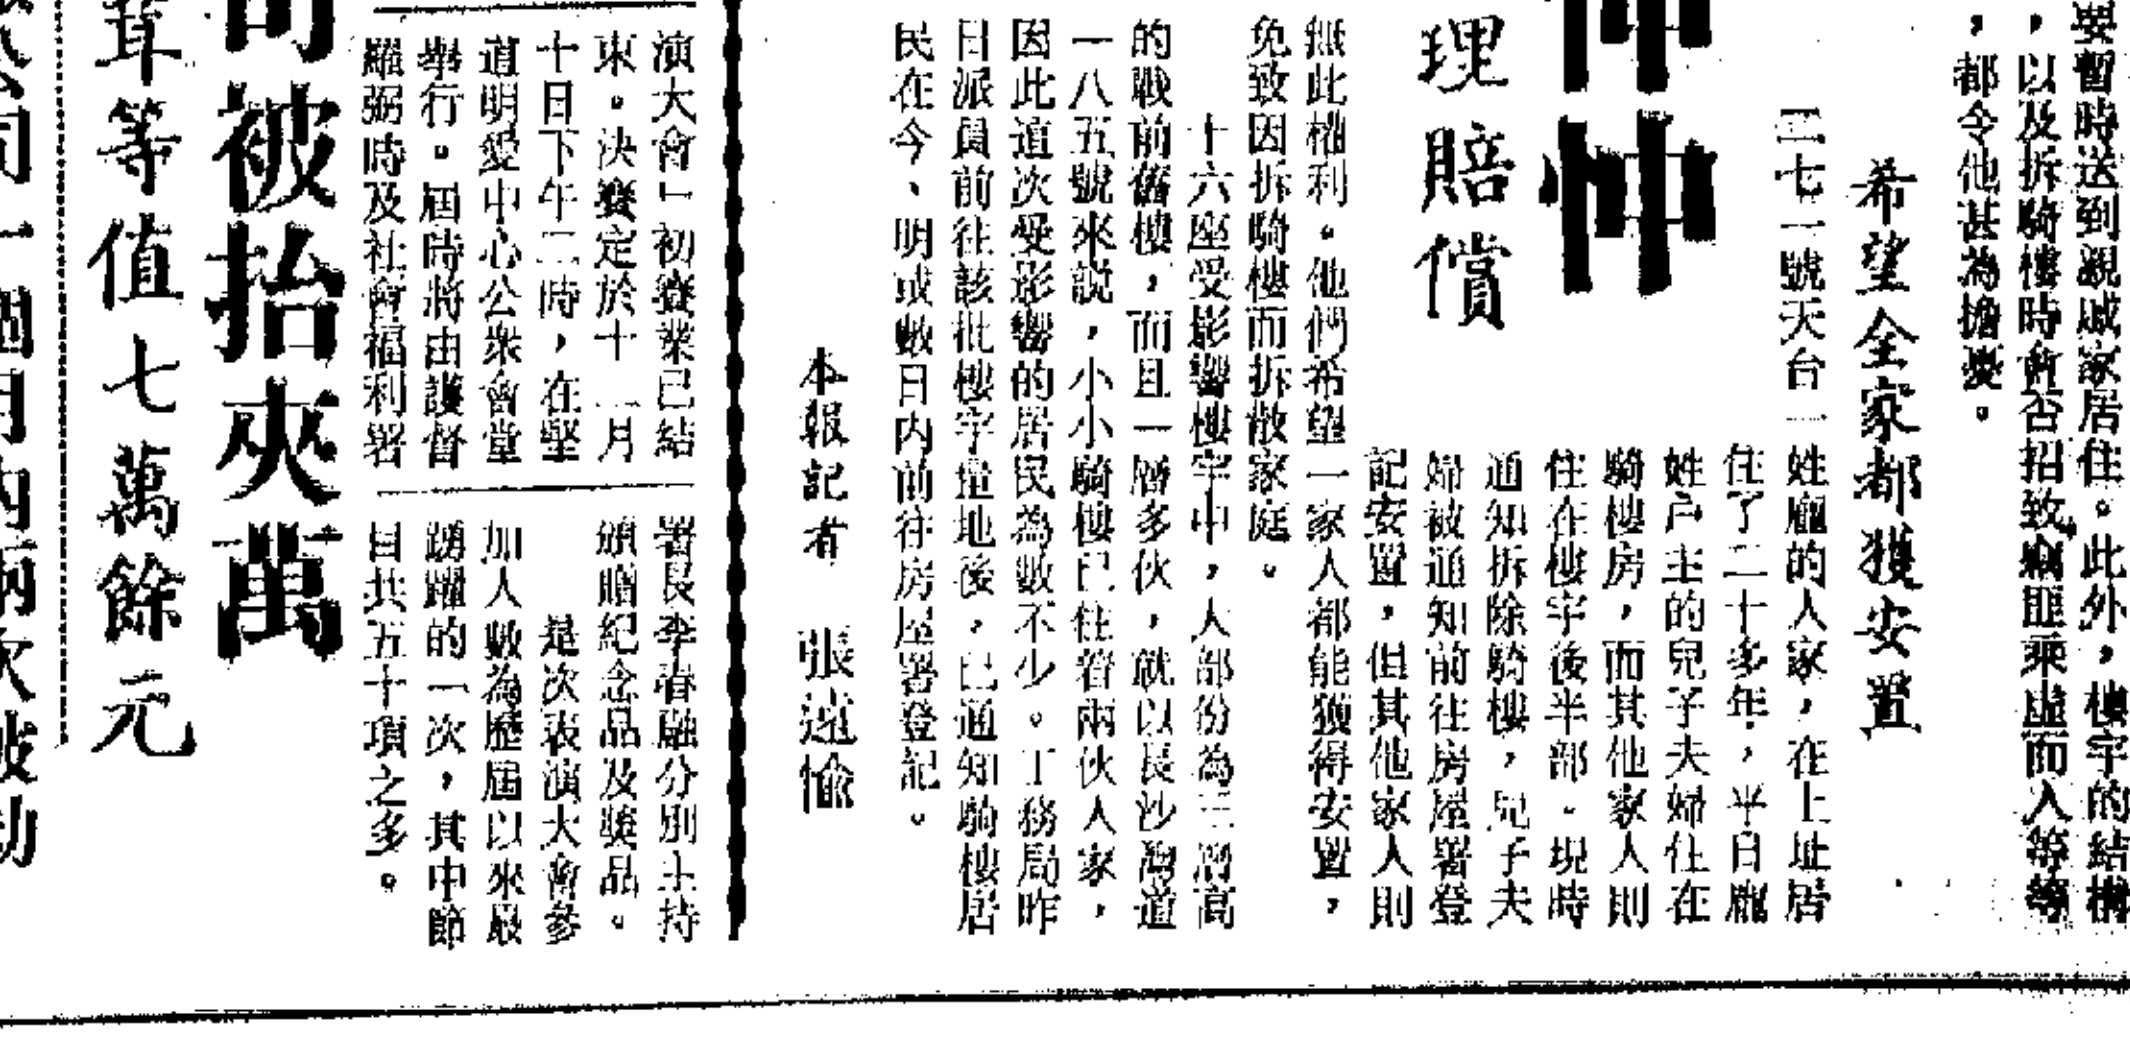 要暫時送到親戚家居住。此外，樓宇的結構
，以及拆騎樓時會否招致竊匪乘虛而入等等
，都令他甚為擔憂。
希望全家都獲安置
二七一號天台一姓龐的人家，在上址居
住了二十多年，平日龐
姓戶主的兒子夫婦住在
騎樓房，而其他家人則
住在樓宇後半部。現時
通知拆除騎樓，兒子夫
婦被通知前往房屋署登
記安置，但其他家人則
無此權利。他們希望一家人都能獲得安置，
免致因拆騎樓而拆散家庭。
十六座受影響樓宇中，大部份為三層高
的戰前舊樓，而且一層多伙，就以長沙灣道
一八五號來說，小小騎樓已住着兩伙人家，
因此這次受影響的居民為數不少。工務局昨
日派員前往該批樓宇量地後，已通知騎樓居
民在今、明或數日內前往房屋署登記。
本報記者　張遠愉
忡
理賠償
演大會」初賽業已結
束。決賽定於十一月
十日下午二時，在堅
道明愛中心公眾會堂
舉行。屆時將由護督
羅弼時及社會福利署
署長李春融分別主持
頒贈紀念品及獎品。
是次表演大會參
加人數為歷屆以來最
踴躍的一次，其中節
目共五十項之多。
司被抬夾萬
等值七萬餘元
公司一個月內兩次被劫